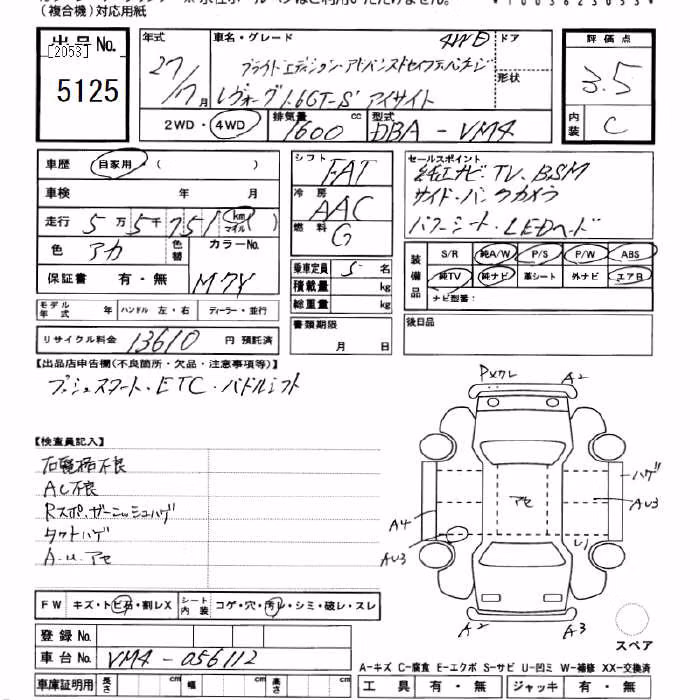 (複合機)対応用紙
出品No.
[2053]
5125
年式
27/7月
車名・グレード
4WD
ドア
形状
ブライトエディション・アドバンスドセイフティパッケージ
レヴォーグ1.6GT-S アイサイト
2WD・4WD
排気量
1600
cc
型式
DBA-VM4
評価点
3.5
内装
C
車歴
自家用・( )
車検 年 月
走行 5万5千751 km マイル( )
色 アカ 色替
カラーNo.
M7Y
保証書 有・無
モデル年式 年 ハンドル 左・右 ディーラー・並行
リサイクル料金 13610 円 預託済
シフト
FAT
冷房
AAC
燃料
G
乗車定員 5 名
積載量 kg
総重量 kg
書類期限
月 日
セールスポイント
純正ナビ・TV、BSM
サイド・バックカメラ
パワーシート・LEDヘッド
装備品
S/R 純A/W P/S P/W ABS
純TV 純ナビ 革シート 外ナビ エアB
ナビ型番:
後日品
【出品店申告欄(不良箇所・欠品・注意事項等)】
プッシュスタート・ETC・パドルシフト
【検査員記入】
AC不良
Rスポ、ガーニッシュハゲ
タワトハゲ
A・U アセ
Pメクレ
A2
ハゲ
AU3
アセ
A4
AU3
U1
A2
A3
スペア
FW キズ・トビ石・割レX シート内装 コゲ・穴・汚レ・シミ・破レ・スレ
登録No.
車台No. VM4-056112
車庫証明用 長さ cm 幅 cm 高さ cm
A-キズ C-腐食 E-エクボ S-サビ U-凹ミ W-補修 XX-交換済
工具 有・無 ジャッキ 有・無